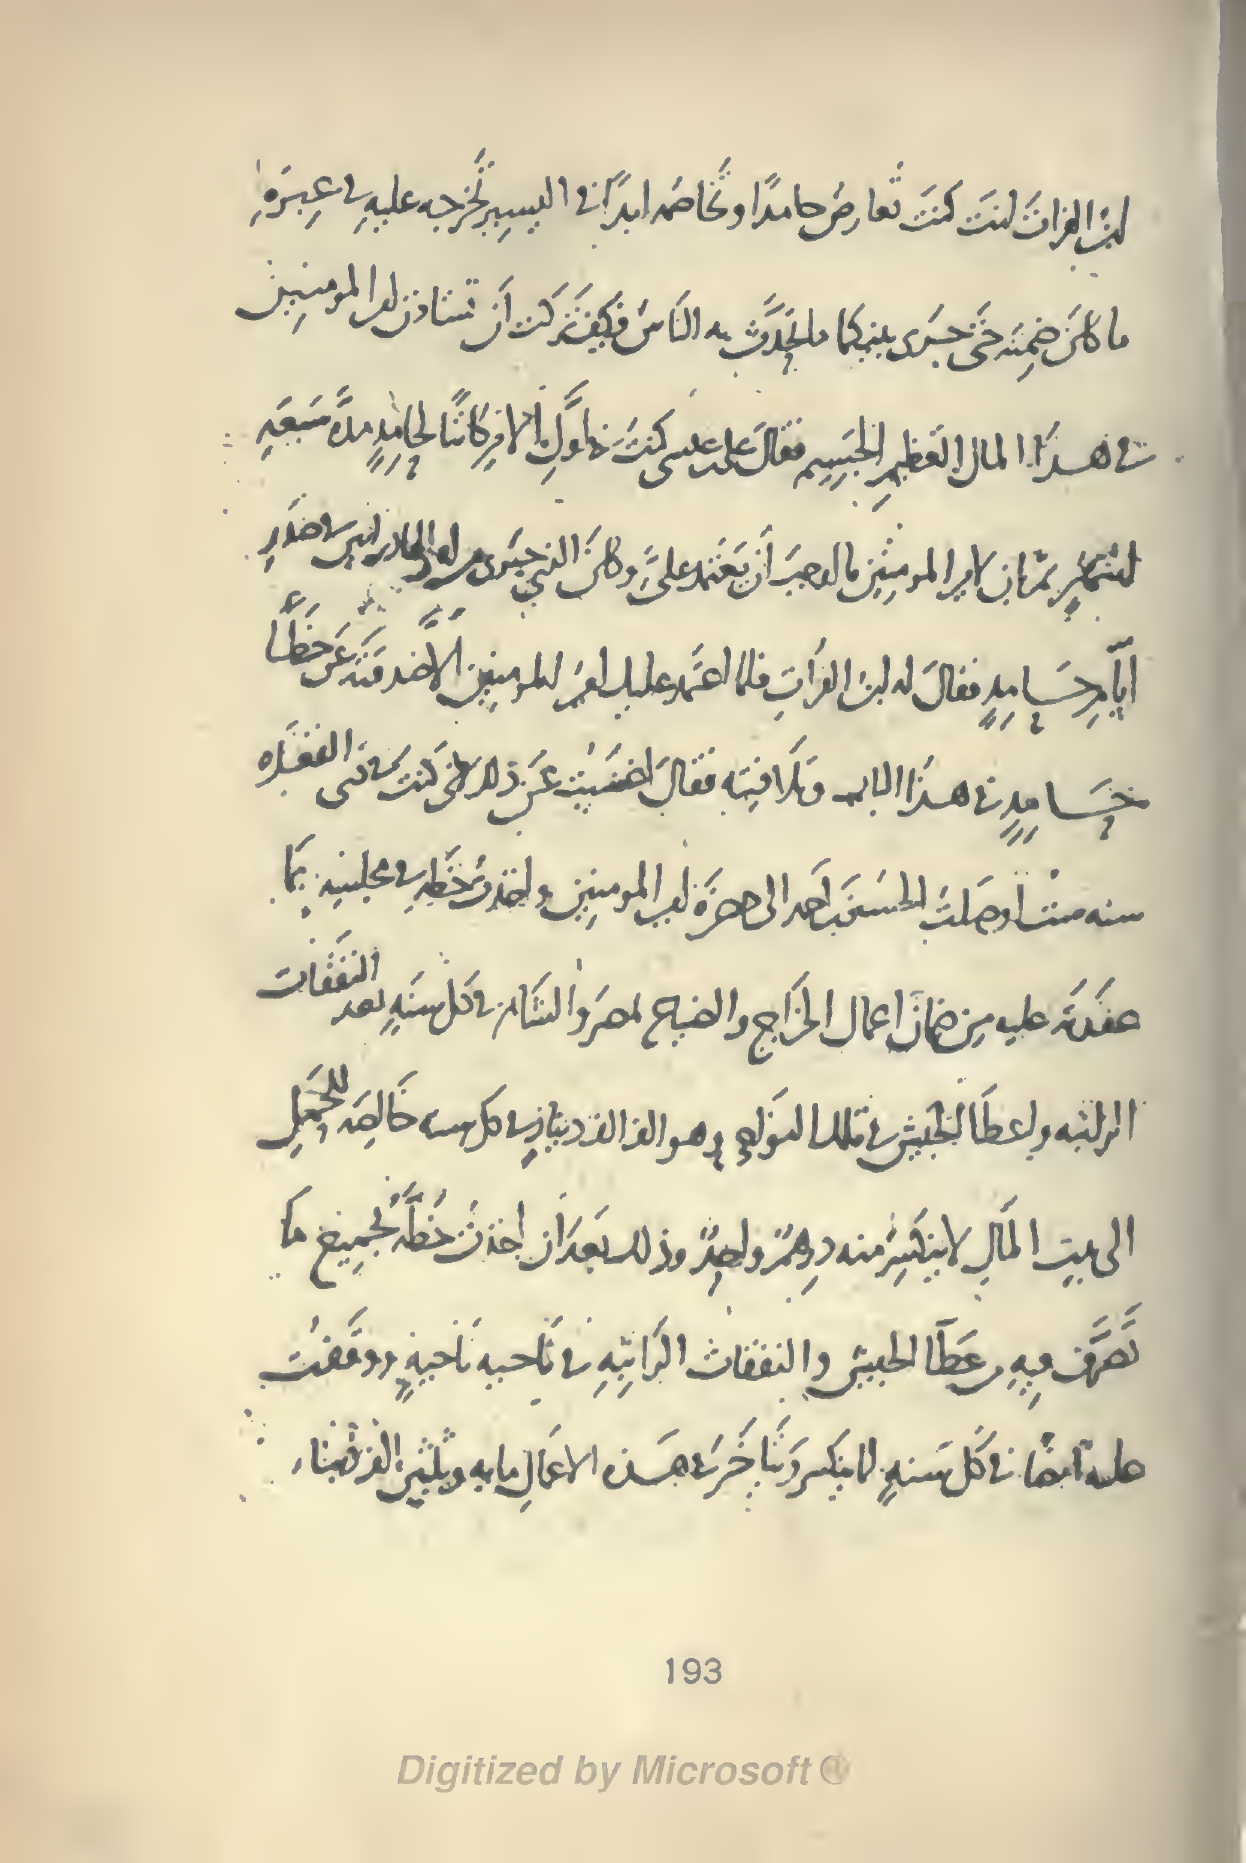 ابن الفرات انت كنت تعارض حامدًا وتخاصمه ابدًا في اليسير تُخرجه عليه في عِبرَةِ
ما كان ضمنه حتى جرى بينكما ما تحدَّث به الناس فكيف تركت أن تستاذن امير المومنين
في هذا المال العظيم الجسيم فقال على بن عيسى كنتَ في اوّل الامر كاتبًا لحامدٍ مدّة سبعة
اشهرٍ ثم ان امير المومنين مال وحب أن يعتمد علىّ وكان الذي جرى من امر المادرائيين في صدر
ايّام حامدٍ فقال له ابن الفرات فلما اعتمد عليك امير المومنين الّا صدقته عن خطأ
حامدٍ في هذا الباب وتلافيته فقال اغضيت عن ذلك لانى كنت في ذى القعدة
سنه ست اوصلت الحسين بن احمد الى حضرة امير المومنين واخذت خطّه في مجلسه بما
عقدته عليه من ضمان اعمال الخراج والضياع لمصر والشام في كل سنةٍ بعد النفقات
الراتبه واعطآ الجيش في تلك النواحي وهو الف الف دينار في كل سنه خالصة للحمل
الى بيت المال لا ينكسر منه درهمٌ واحدٌ وذلك بعد أن اخذت خطّه بجميع ما
تصرّف فيه من عطآ الجيش والنفقات الراتبه في ناحيه ناحيةٍ ووقفت
عليه ايضًا في كل سنةٍ لما ينكسر ويتأخر في هذه الاعمال مايه وثلثين الف دينار
193
Digitized by Microsoft ®